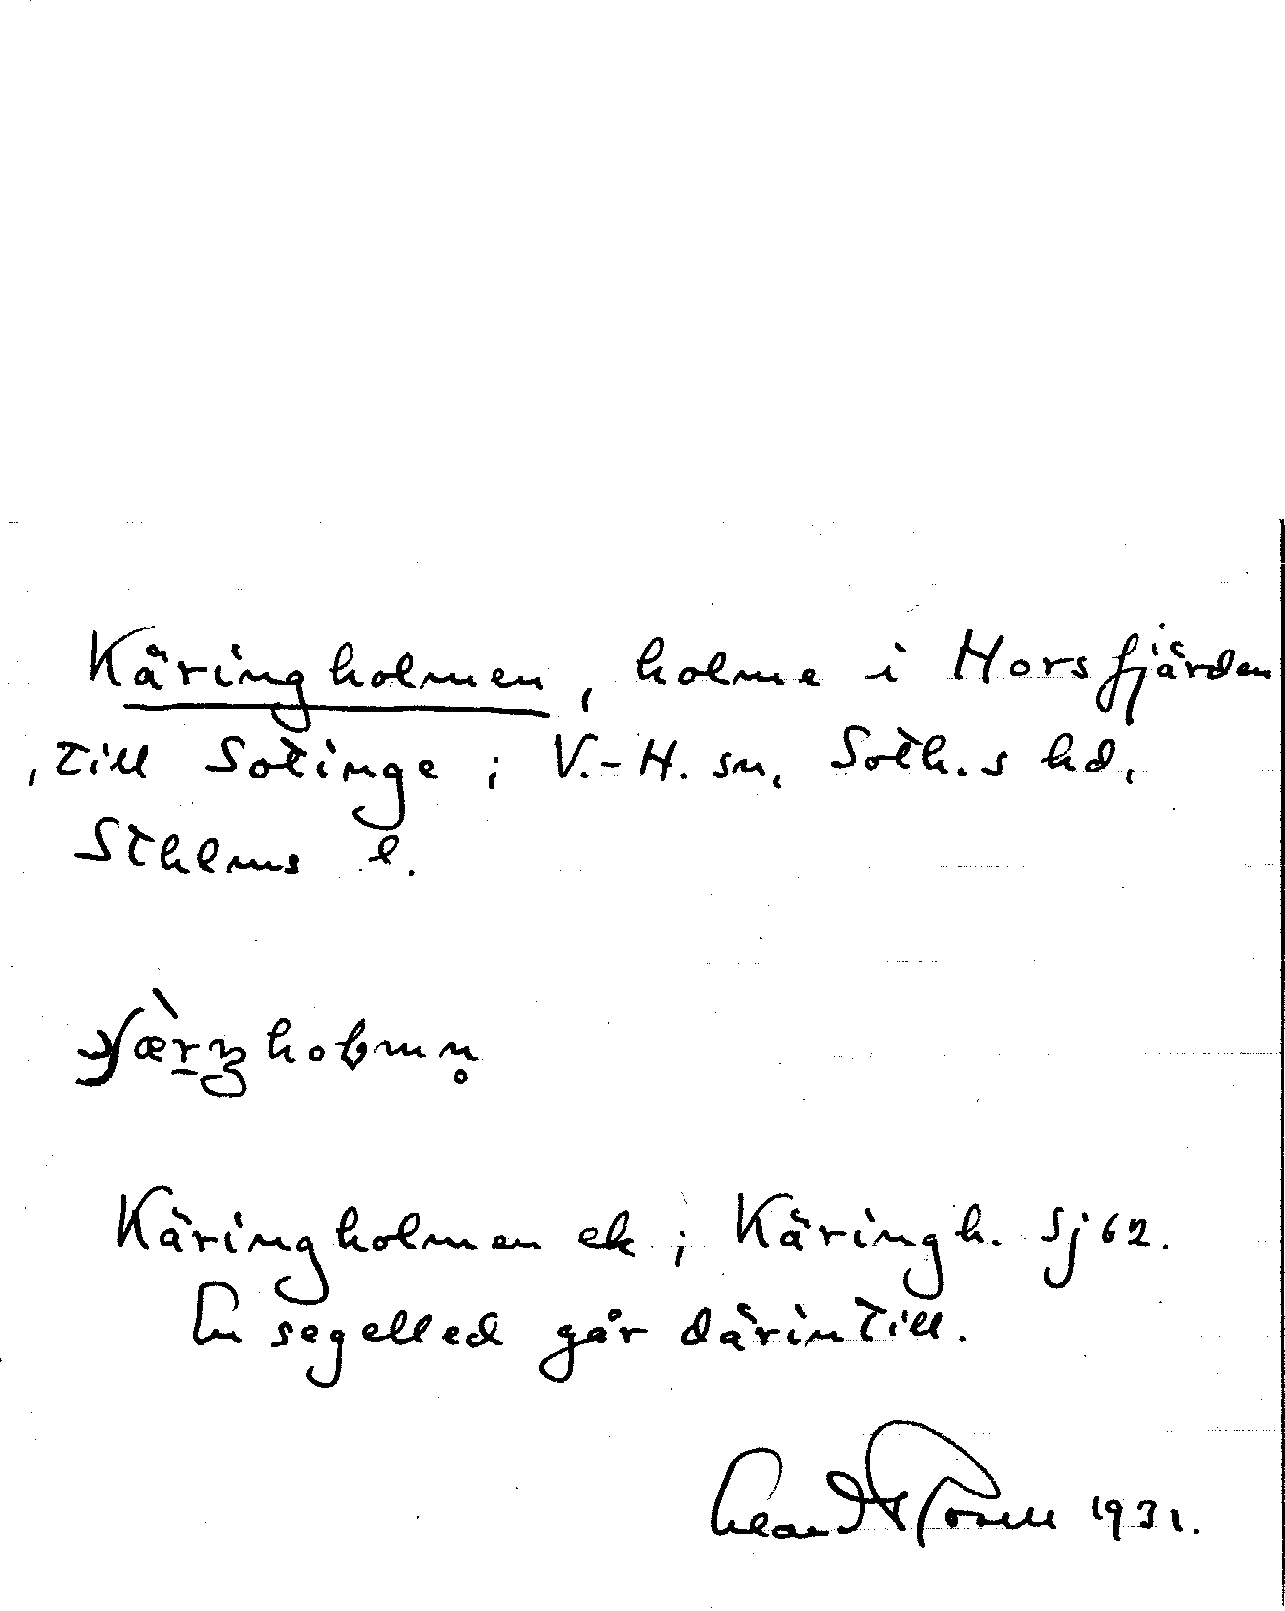 Käringholmen, holme i Horsfjärden
, till Sotinge ; V.-H. sn, Soth.s hd,
Sthlms l.
Käringholmen ek ; Käringh. Sj 62.
En segelled går därintill.
1931.